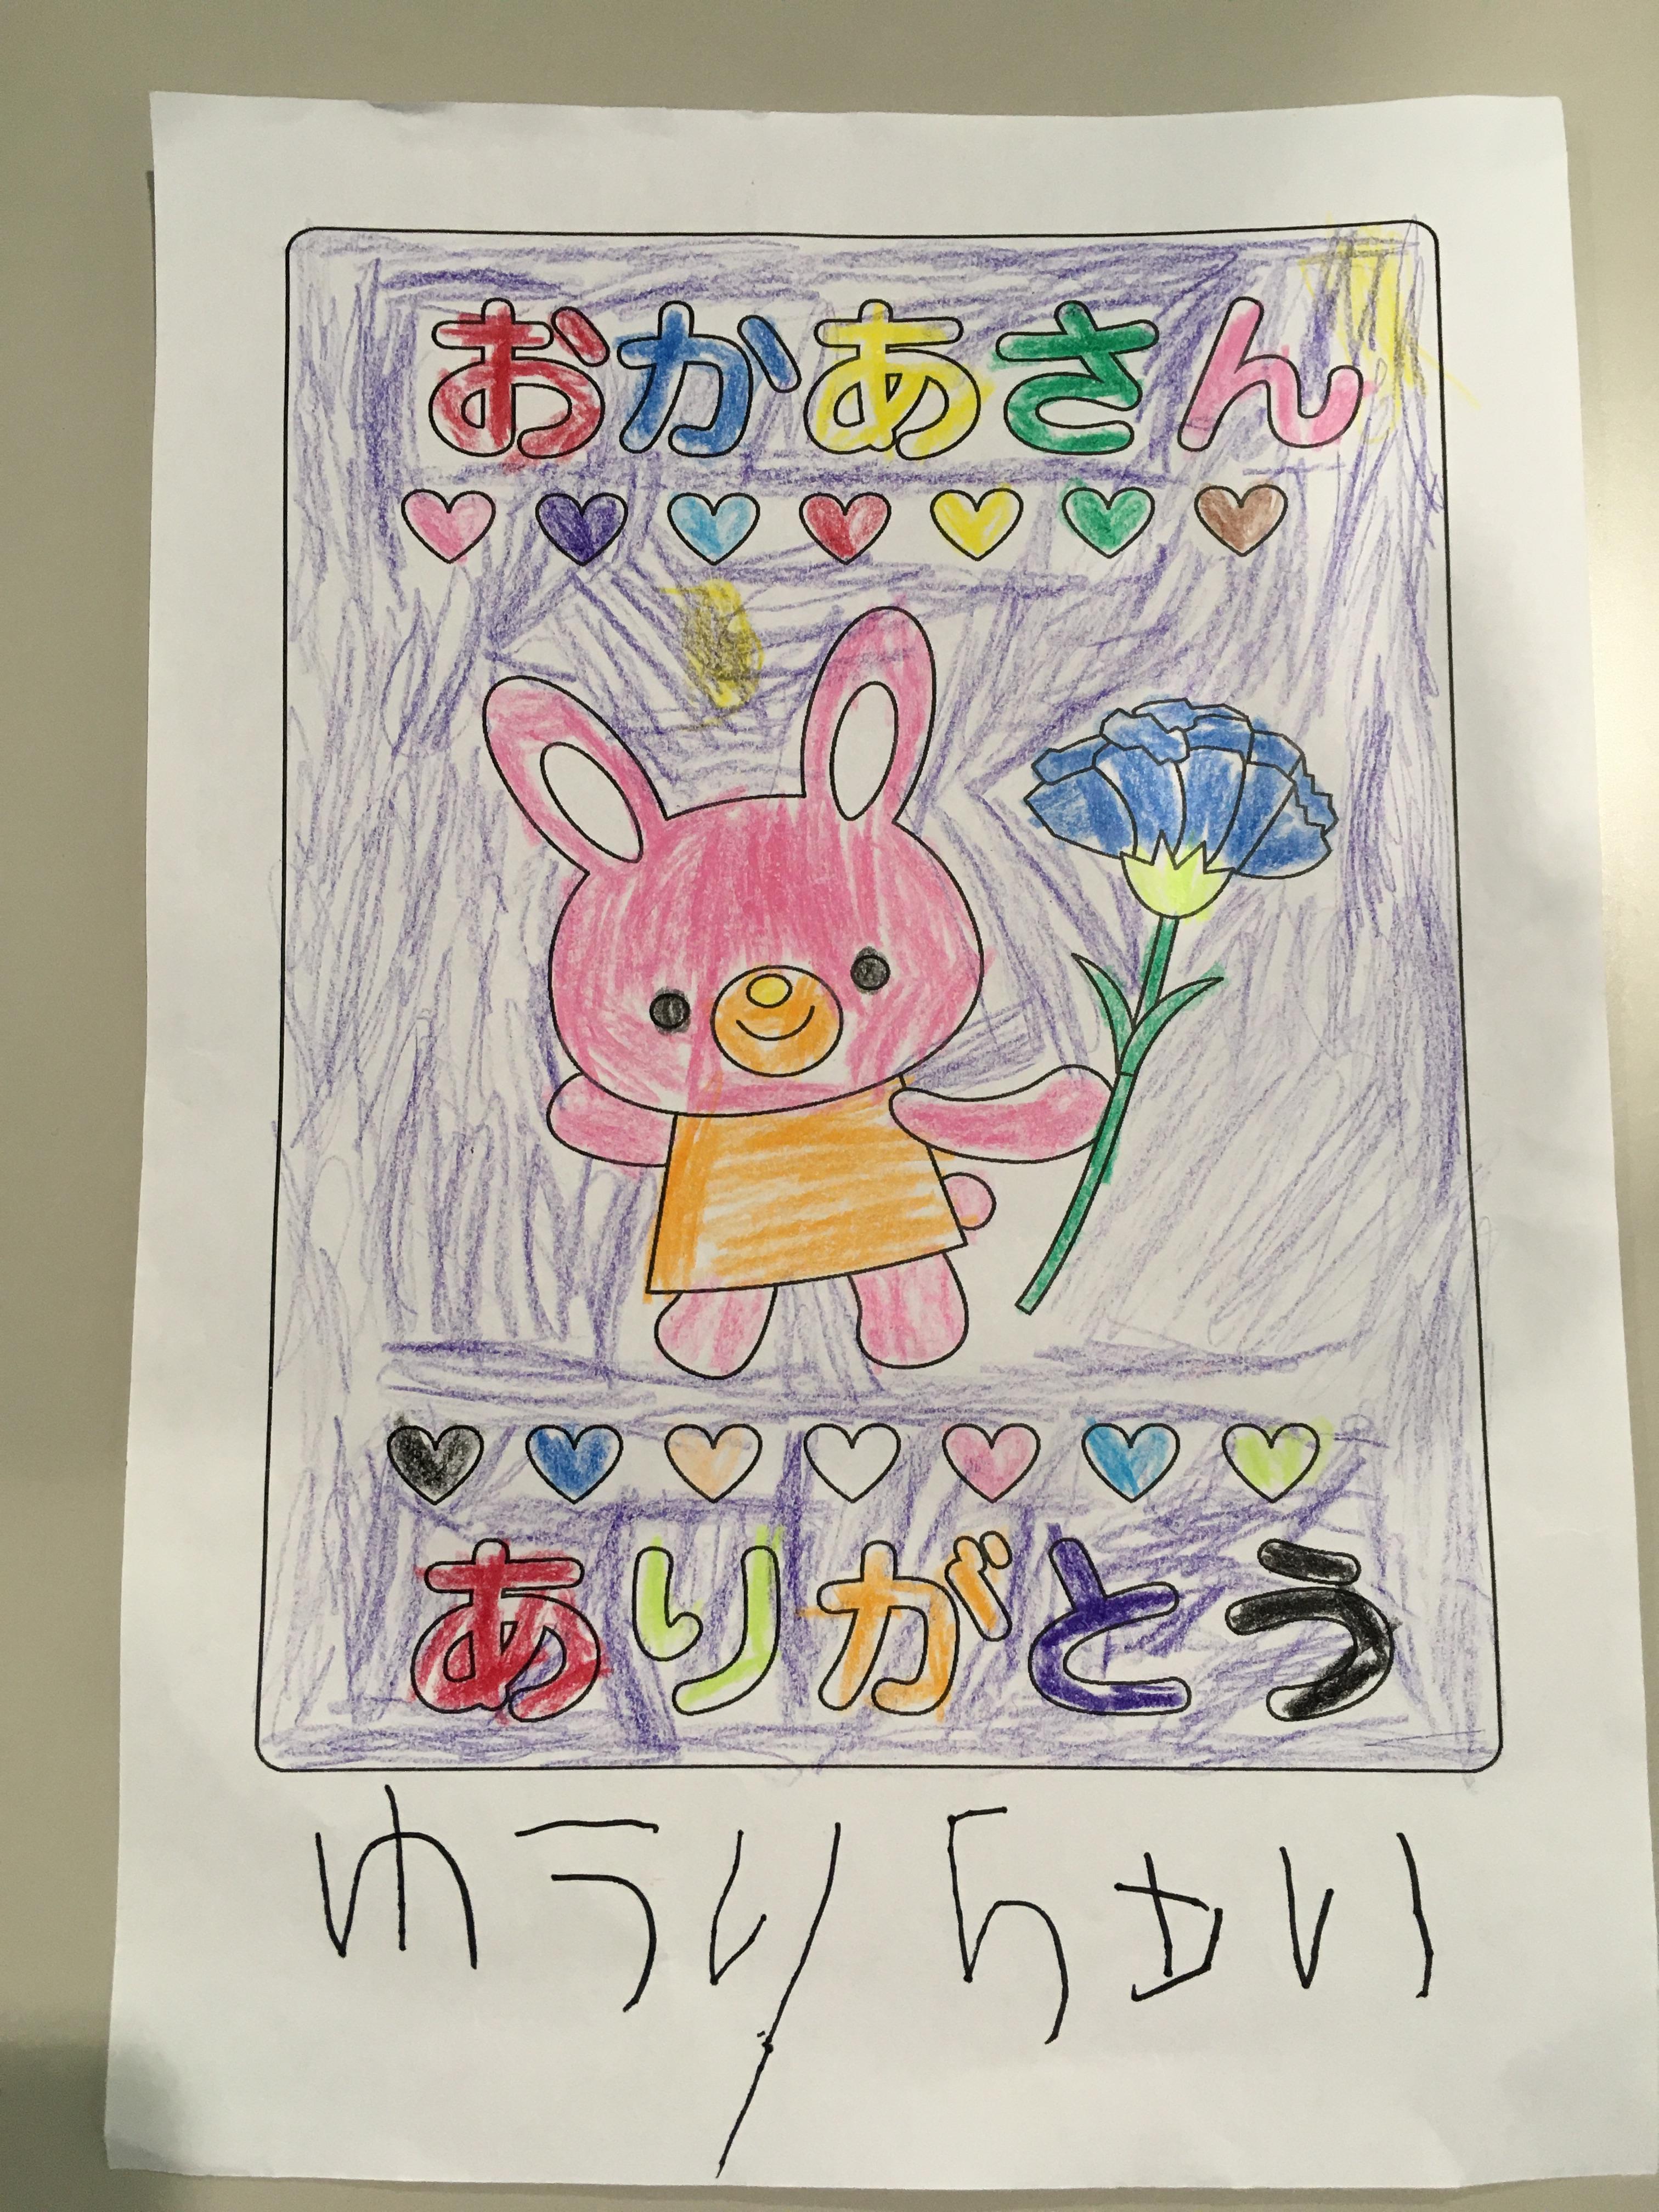 おかあさん
ありがとう
ゆうり